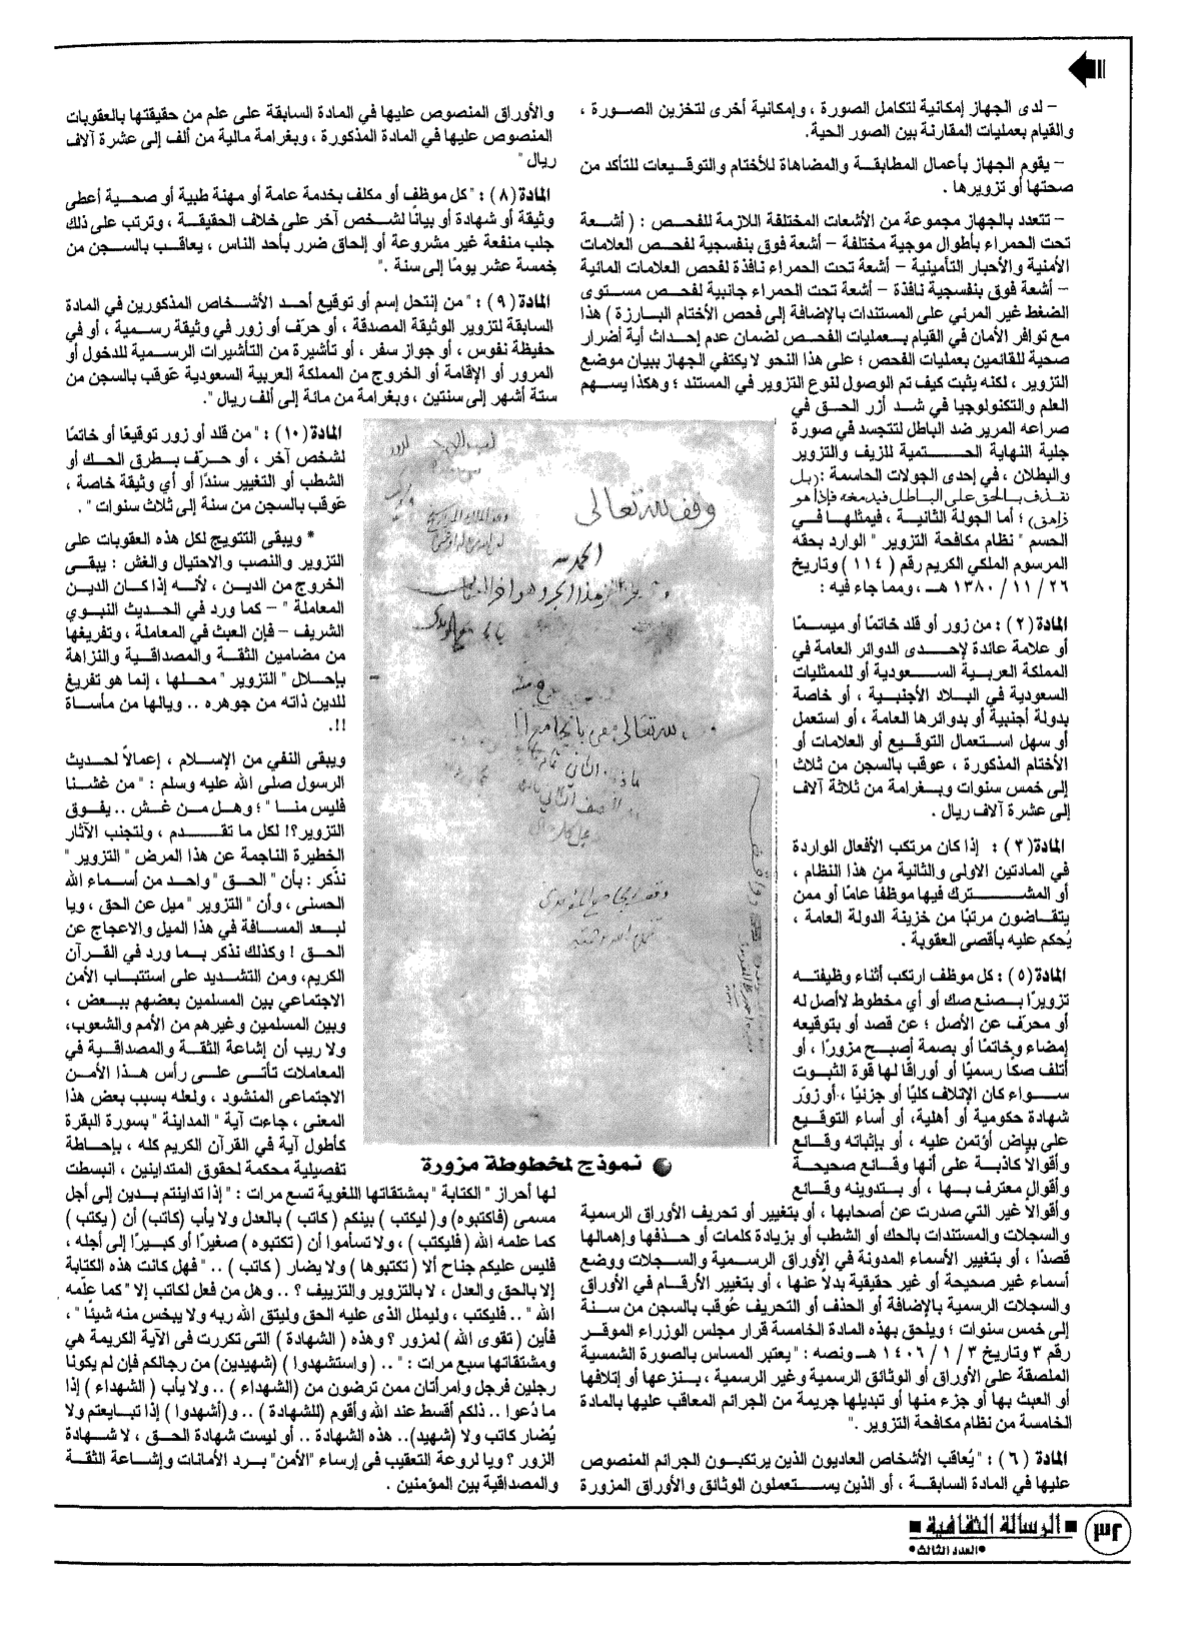 – لدى الجهاز إمكانية لتكامل الصورة ، وإمكانية أخرى لتخزين الصورة ،
والقيام بعمليات المقارنة بين الصور الحية.
– يقوم الجهاز بأعمال المطابقة والمضاهاة للأختام والتوقيعات للتأكد من
صحتها أو تزويرها .
– تتعدد بالجهاز مجموعة من الأشعات المختلفة اللازمة للفحص : ( أشعة
تحت الحمراء بأطوال موجية مختلفة – أشعة فوق بنفسجية لفحص العلامات
الأمنية والأحبار التأمينية – أشعة تحت الحمراء نافذة لفحص العلامات المائية
– أشعة فوق بنفسجية نافذة – أشعة تحت الحمراء جانبية لفحص مستوى
الضغط غير المرئي على المستندات بالإضافة إلى فحص الأختام البارزة ) هذا
مع توافر الأمان في القيام بعمليات الفحص لضمان عدم إحداث أية أضرار
صحية للقائمين بعمليات الفحص ؛ على هذا النحو لا يكتفي الجهاز ببيان موضع
التزوير ، لكنه يثبت كيف تم الوصول لنوع التزوير في المستند ؛ وهكذا يسهم
العلم والتكنولوجيا في شد أزر الحق في
صراعه المرير ضد الباطل لتتجسد في صورة
جلية النهاية الحتمية للزيف والتزوير
والبطلان ، في إحدى الجولات الحاسمة : (بل
نقذف بالحق على الباطل فيدمغه فإذا هو
زاهق) ؛ أما الجولة الثانية ، فيمثلها في
الحسم " نظام مكافحة التزوير " الوارد بحقه
المرسوم الملكي الكريم رقم ( ١١٤ ) وتاريخ
٢٦ / ١١ / ١٣٨٠ هـ ، ومما جاء فيه :
المادة (٢) : من زور أو قلد خاتمًا أو ميسمًا
أو علامة عائدة لإحدى الدوائر العامة في
المملكة العربية السعودية أو للممثليات
السعودية في البلاد الأجنبية ، أو خاصة
بدولة أجنبية أو بدوائرها العامة ، أو استعمل
أو سهل استعمال التوقيع أو العلامات أو
الأختام المذكورة ، عوقب بالسجن من ثلاث
إلى خمس سنوات وبغرامة من ثلاثة آلاف
إلى عشرة آلاف ريال .
المادة(٣) : إذا كان مرتكب الأفعال الواردة
في المادتين الاولى والثانية من هذا النظام ،
أو المشترك فيها موظفًا عامًا أو ممن
يتقاضون مرتبًا من خزينة الدولة العامة ،
يُحكم عليه بأقصى العقوبة .
المادة (٥) : كل موظف ارتكب أثناء وظيفته
تزويرًا بصنع صك أو أي مخطوط لاأصل له
أو محرّف عن الأصل ؛ عن قصد أو بتوقيعه
إمضاء وخاتمًا أو بصمة أصبح مزورًا ، أو
أتلف صكًا رسميًا أو أوراقًا لها قوة الثبوت
سواء كان الإتلاف كليًا أو جزئيًا ، أو زوّر
شهادة حكومية أو أهلية، أو أساء التوقيع
على بياض أؤتمن عليه ، أو بإثباته وقائع
وأقوالا كاذبة على أنها وقائع صحيحة
وأقوال معترف بها ، أو بتدوينه وقائع
وأقوالا غير التي صدرت عن أصحابها ، أو بتغيير أو تحريف الأوراق الرسمية
والسجلات والمستندات بالحك أو الشطب أو بزيادة كلمات أو حذفها وإهمالها
قصدًا ، أو بتغيير الأسماء المدونة في الأوراق الرسمية والسجلات ووضع
أسماء غير صحيحة أو غير حقيقية بدلاً عنها ، أو بتغيير الأرقام في الأوراق
والسجلات الرسمية بالإضافة أو الحذف أو التحريف عُوقب بالسجن من سنة
إلى خمس سنوات ؛ ويلحق بهذه المادة الخامسة قرار مجلس الوزراء الموقر
رقم ٣ وتاريخ ٣ / ١ / ١٤٠٦ هـ ونصه : " يعتبر المساس بالصورة الشمسية
الملصقة على الأوراق أو الوثائق الرسمية وغير الرسمية ، بنزعها أو إتلافها
أو العبث بها أو جزء منها أو تبديلها جريمة من الجرائم المعاقب عليها بالمادة
الخامسة من نظام مكافحة التزوير ."
المادة (٦) : "يُعاقب الأشخاص العاديون الذين يرتكبون الجرائم المنصوص
عليها في المادة السابقة ، أو الذين يستعملون الوثائق والأوراق المزورة
والأوراق المنصوص عليها في المادة السابقة على علم من حقيقتها بالعقوبات
المنصوص عليها في المادة المذكورة ، وبغرامة مالية من ألف إلى عشرة آلاف
ريال "
المادة (٨) : "كل موظف أو مكلف بخدمة عامة أو مهنة طبية أو صحية أعطى
وثيقة أو شهادة أو بيانًا لشخص آخر على خلاف الحقيقة ، وترتب على ذلك
جلب منفعة غير مشروعة أو إلحاق ضرر بأحد الناس ، يعاقب بالسجن من
خمسة عشر يومًا إلى سنة ."
المادة (٩) : " من إنتحل إسم أو توقيع أحد الأشخاص المذكورين في المادة
السابقة لتزوير الوثيقة المصدقة ، أو حرّف أو زور في وثيقة رسمية ، أو في
حفيظة نفوس ، أو جواز سفر ، أو تأشيرة من التأشيرات الرسمية للدخول أو
المرور أو الإقامة أو الخروج من المملكة العربية السعودية عَوقب بالسجن من
ستة أشهر إلى سنتين ، وبغرامة من مائة إلى ألف ريال ".
المادة (١٠) : "من قلد أو زور توقيعًا أو خاتمًا
لشخص آخر ، أو حرّف بطرق الحك أو
الشطب أو التغيير سندًا أو أي وثيقة خاصة ،
عَوقب بالسجن من سنة إلى ثلاث سنوات " .
* ويبقى التتويج لكل هذه العقوبات على
التزوير والنصب والاحتيال والغش : يبقى
الخروج من الدين ، لأنه إذا كان الدين
المعاملة " – كما ورد في الحديث النبوي
الشريف – فإن العبث في المعاملة ، وتفريغها
من مضامين الثقة والمصداقية والنزاهة
بإحلال " التزوير " محلها ، إنما هو تفريغ
للدين ذاته من جوهره .. ويالها من مأساة
!!.
ويبقى النفي من الإسلام ، إعمالاً لحديث
الرسول صلى الله عليه وسلم : " من غشنا
فليس منا " ؛ وهل من غش .. يفوق
التزوير؟! لكل ما تقدم ، ولتجنب الآثار
الخطيرة الناجمة عن هذا المرض " التزوير "
نذّكر : بأن " الحق " واحد من أسماء الله
الحسنى ، وأن " التزوير " ميل عن الحق ، ويا
لبعد المسافة في هذا الميل والاعجاج عن
الحق ! وكذلك نذكر بما ورد في القرآن
الكريم، ومن التشديد على استتباب الأمن
الاجتماعي بين المسلمين بعضهم ببعض ،
وبين المسلمين وغيرهم من الأمم والشعوب،
ولا ريب أن إشاعة الثقة والمصداقية في
المعاملات تأتى على رأس هذا الأمن
الاجتماعى المنشود ، ولعله بسبب بعض هذا
المعنى ، جاءت آية " المداينة " بسورة البقرة
كأطول آية في القرآن الكريم كله ، بإحاطة
تفصيلية محكمة لحقوق المتداينين ، انبسطت
لها أحراز " الكتابة " بمشتقاتها اللغوية تسع مرات : " إذا تداينتم بدين إلى أجل
مسمى (فاكتبوه) و( ليكتب ) بينكم ( كاتب ) بالعدل ولا يأب (كاتب) أن ( يكتب )
كما علمه الله ( فليكتب ) ، ولا تسأموا أن ( تكتبوه ) صغيرًا أو كبيرًا إلى أجله ،
فليس عليكم جناح ألا ( تكتبوها ) ولا يضار ( كاتب ) .. " فهل كانت هذه الكتابة
إلا بالحق والعدل ، لا بالتزوير والتزييف ؟ .. وهل من فعل لكاتب إلا "كما علّمه
الله " .. فليكتب ، وليملل الذى عليه الحق وليتق الله ربه ولا يبخس منه شيئًا " ،
فأين ( تقوى الله ) لمزور ؟ وهذه ( الشهادة ) التى تكررت فى الآية الكريمة هي
ومشتقاتها سبع مرات : " .. ( واستشهدوا ) (شهيدين) من رجالكم فإن لم يكونا
رجلين فرجل وامرأتان ممن ترضون من (الشهداء ) .. ولا يأب ( الشهداء ) إذا
ما دُعوا .. ذلكم أقسط عند الله وأقوم (للشهادة ) .. و(أشهدوا ) إذا تبايعتم ولا
يُضار كاتب ولا (شهيد).. هذه الشهادة .. أو ليست شهادة الحق ، لا شهادة
الزور ؟ ويا لروعة التعقيب فى إرساء "الأمن" برد الأمانات وإشاعة الثقة
والمصداقية بين المؤمنين .
وقف لله تعالى
الحمد لله
نموذج لمخطوطة مزورة
٣٢
الرسالة الثقافية
•العدد الثالث•